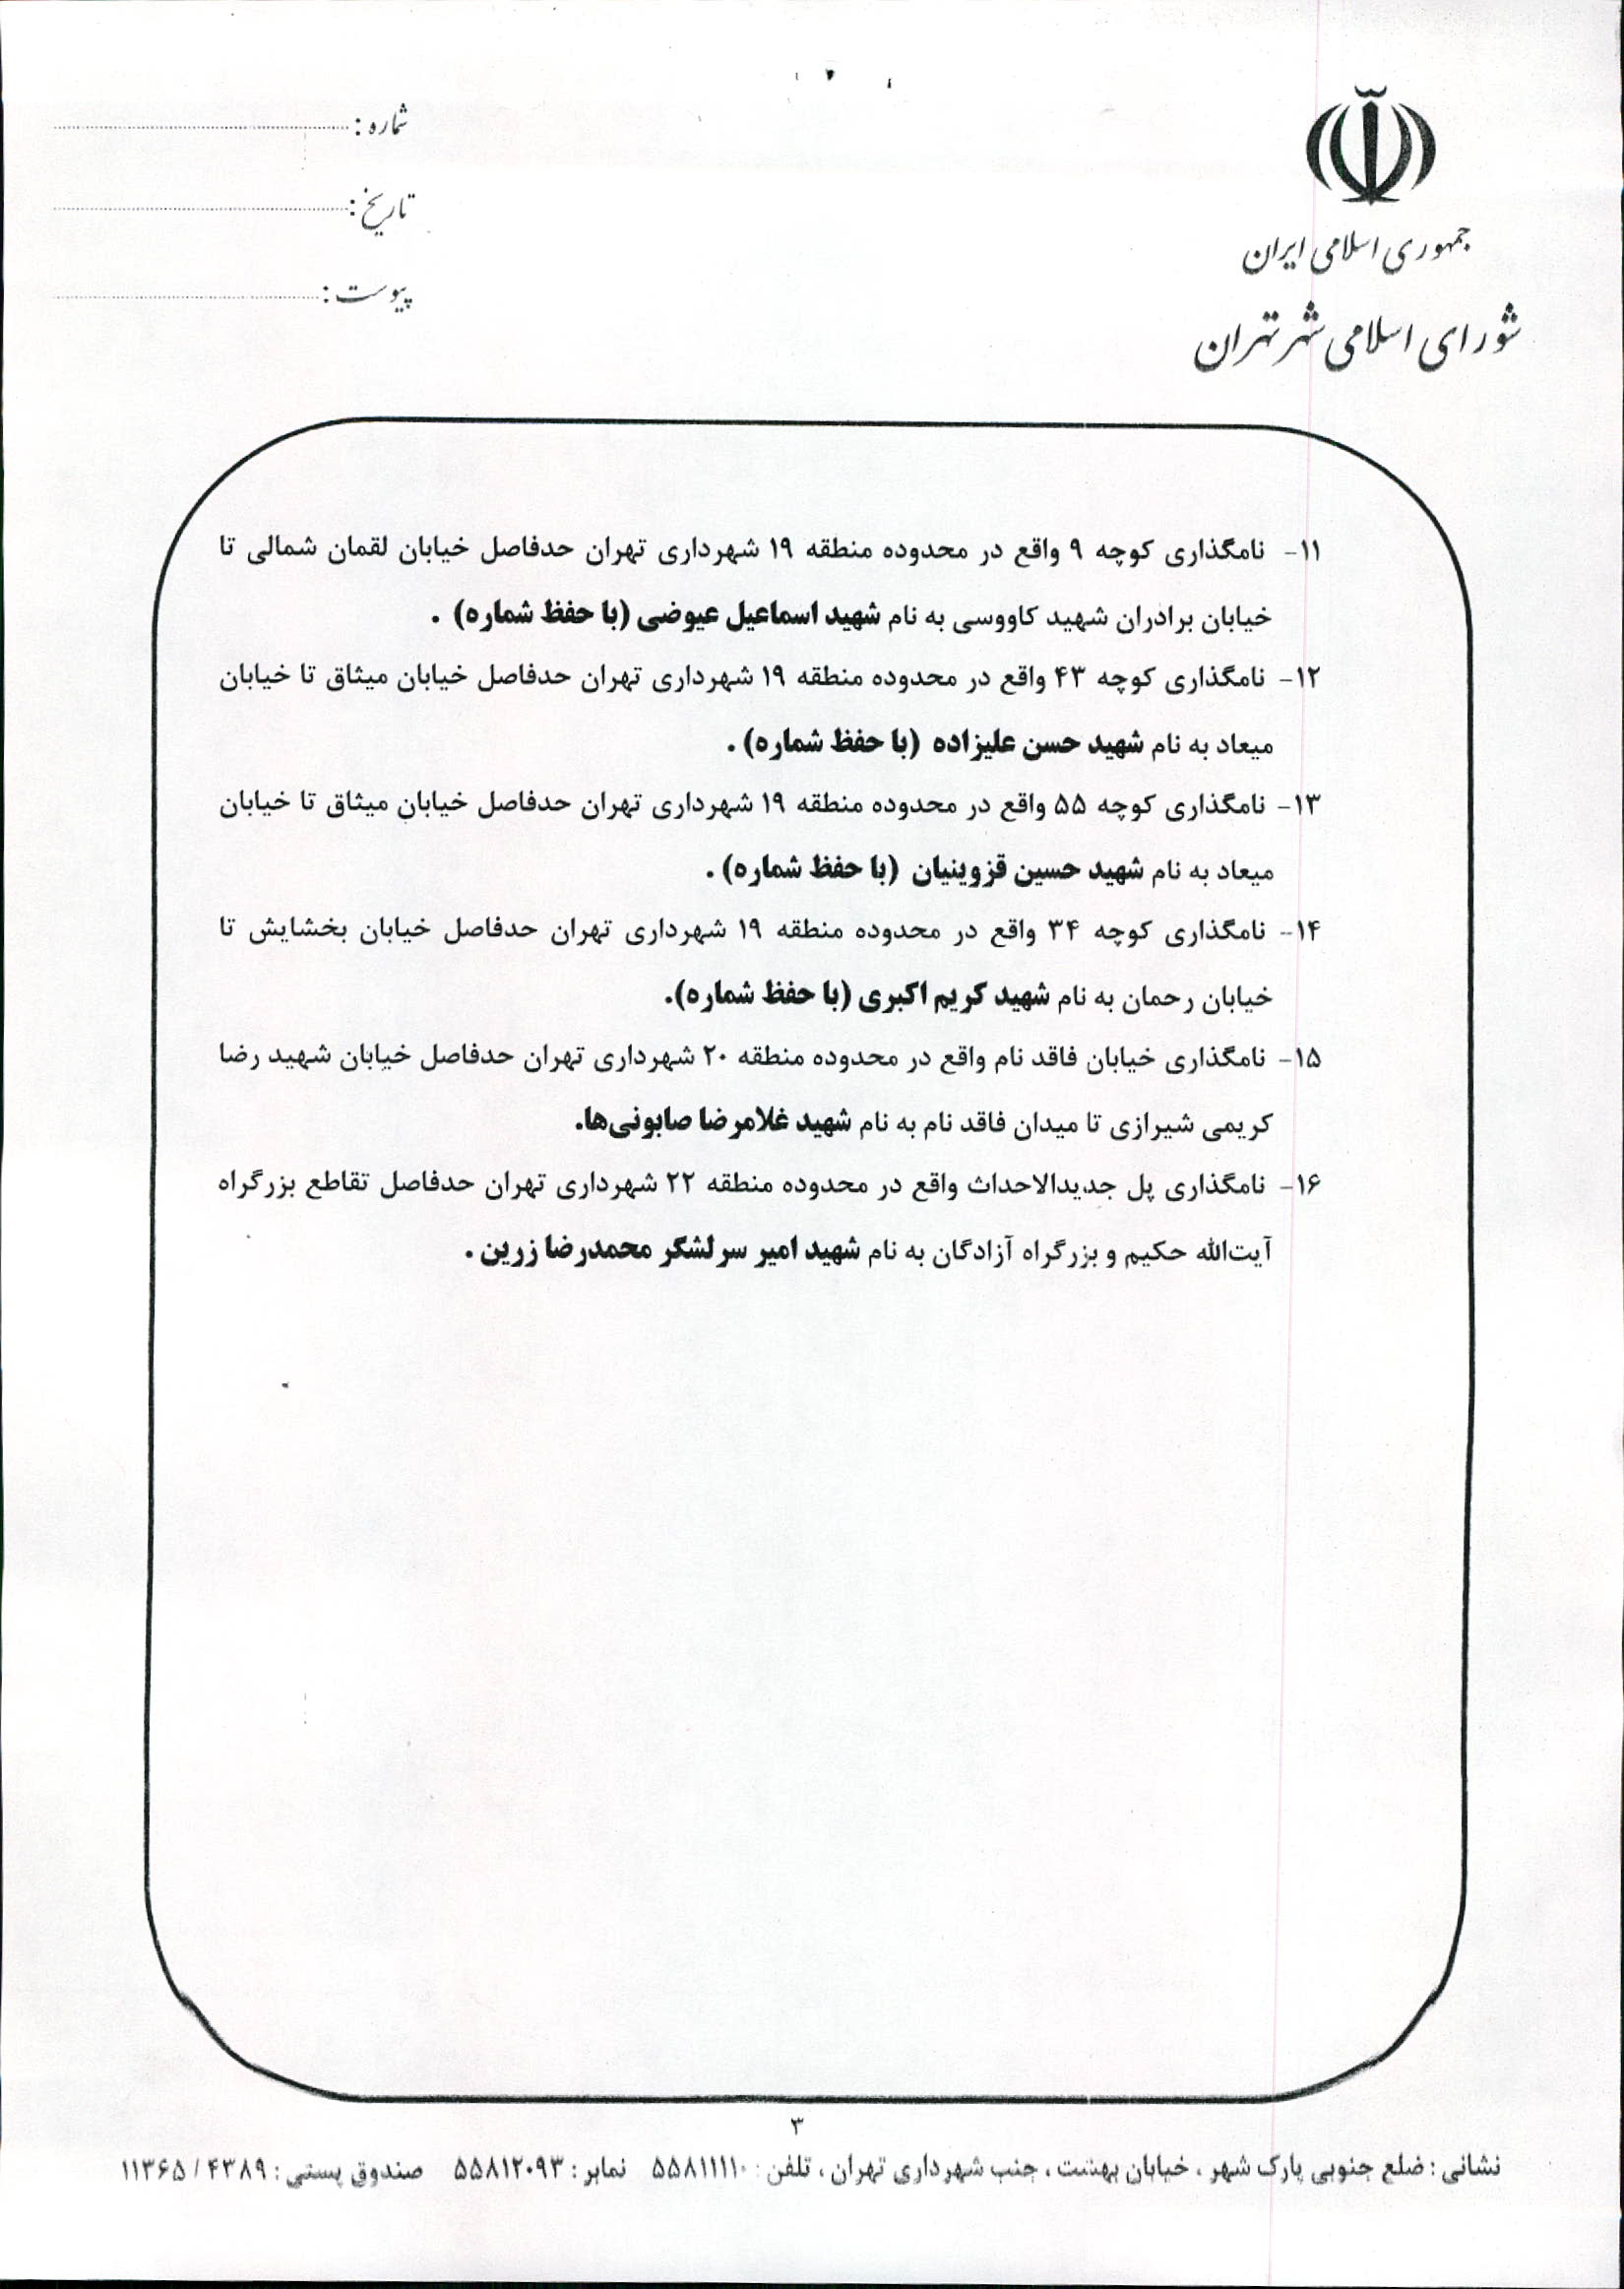 جمهوری اسلامی ایران
شورای اسلامی شهر تهران
شماره :
تاریخ :
پیوست :
۱۱- نامگذاری کوچه ۹ واقع در محدوده منطقه ۱۹ شهرداری تهران حدفاصل خیابان لقمان شمالی تا
خیابان برادران شهید کاووسی به نام شهید اسماعیل عیوضی (با حفظ شماره) .
۱۲- نامگذاری کوچه ۴۳ واقع در محدوده منطقه ۱۹ شهرداری تهران حدفاصل خیابان میثاق تا خیابان
میعاد به نام شهید حسن علیزاده (با حفظ شماره) .
۱۳- نامگذاری کوچه ۵۵ واقع در محدوده منطقه ۱۹ شهرداری تهران حدفاصل خیابان میثاق تا خیابان
میعاد به نام شهید حسین قزوینیان (با حفظ شماره) .
۱۴- نامگذاری کوچه ۳۴ واقع در محدوده منطقه ۱۹ شهرداری تهران حدفاصل خیابان بخشایش تا
خیابان رحمان به نام شهید کریم اکبری (با حفظ شماره).
۱۵- نامگذاری خیابان فاقد نام واقع در محدوده منطقه ۲۰ شهرداری تهران حدفاصل خیابان شهید رضا
کریمی شیرازی تا میدان فاقد نام به نام شهید غلامرضا صابونی‌ها.
۱۶- نامگذاری پل جدیدالاحداث واقع در محدوده منطقه ۲۲ شهرداری تهران حدفاصل تقاطع بزرگراه
آیت‌الله حکیم و بزرگراه آزادگان به نام شهید امیر سرلشکر محمدرضا زرین .
۳
نشانی : ضلع جنوبی پارک شهر ، خیابان بهشت ، جنب شهرداری تهران ، تلفن : ۵۵۸۱۱۱۱۰ نمابر : ۵۵۸۱۲۰۹۳ صندوق پستی : ۴۳۸۹ / ۱۱۳۶۵